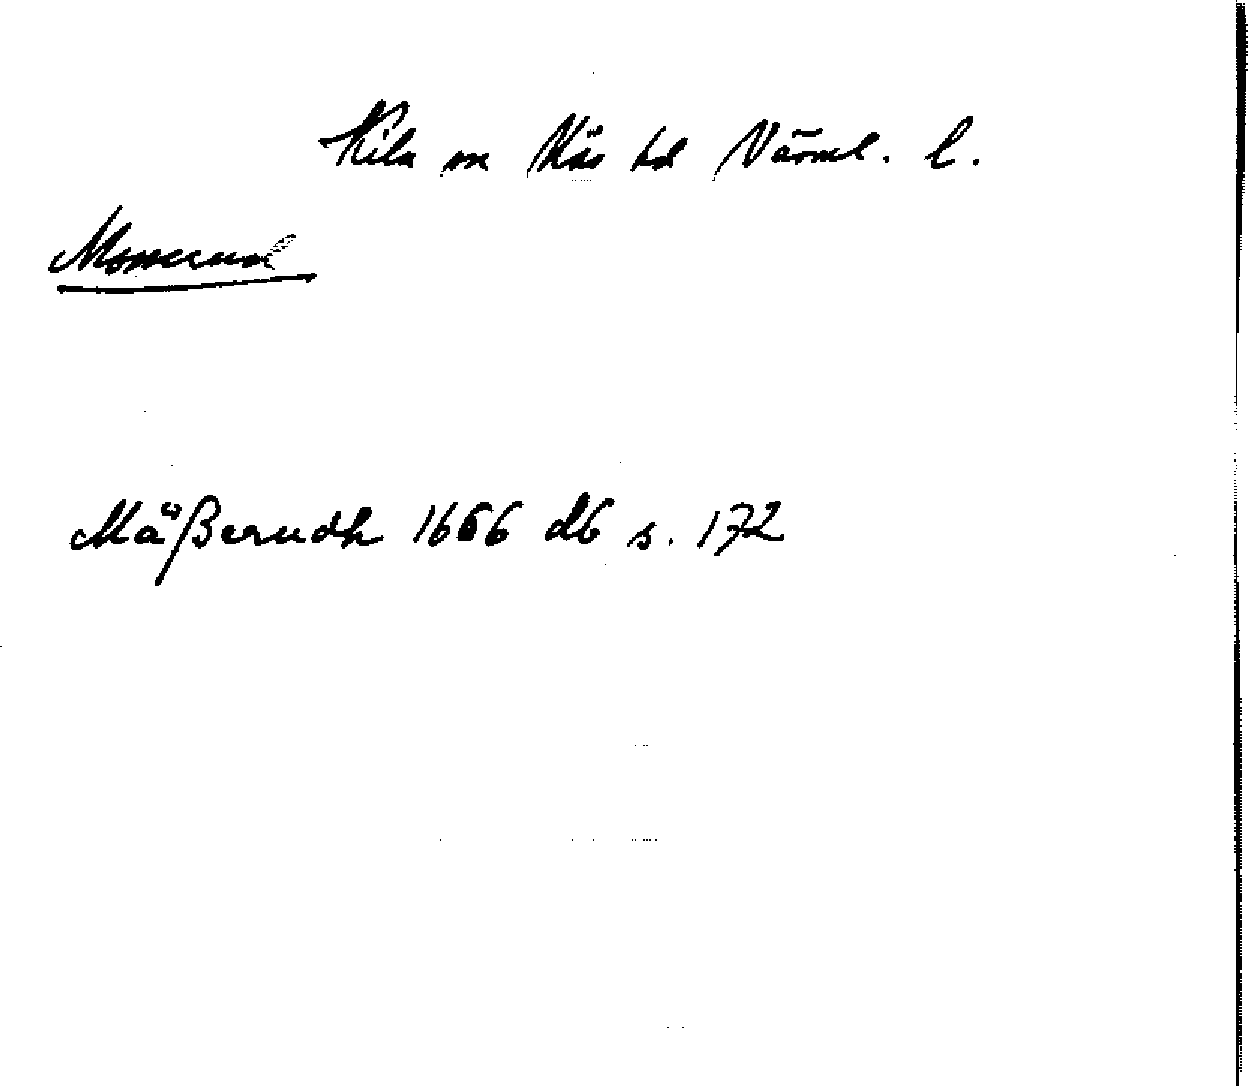 Kila sn Näs hd Värml. l.
Mosserud
Mäßerudh 1666 db s. 172